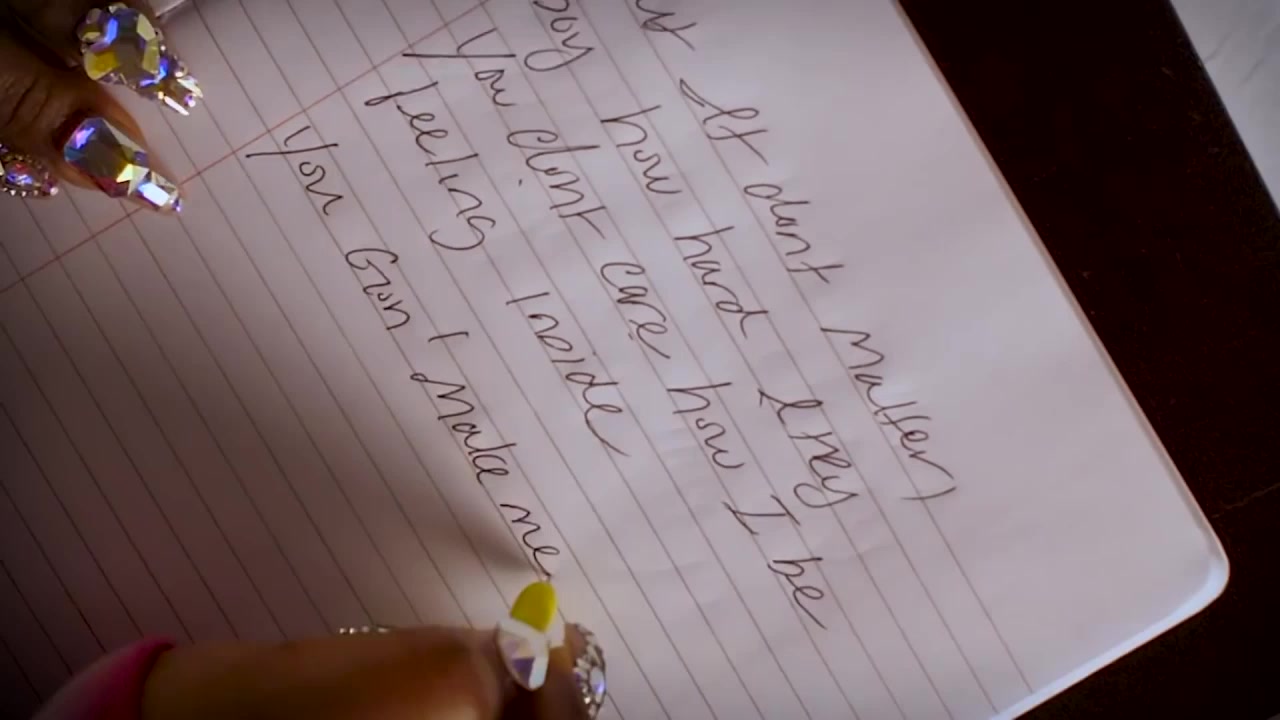 It dont matter,
boy how hard they
You dont care how I be
feeling Inside
You Gon' make me